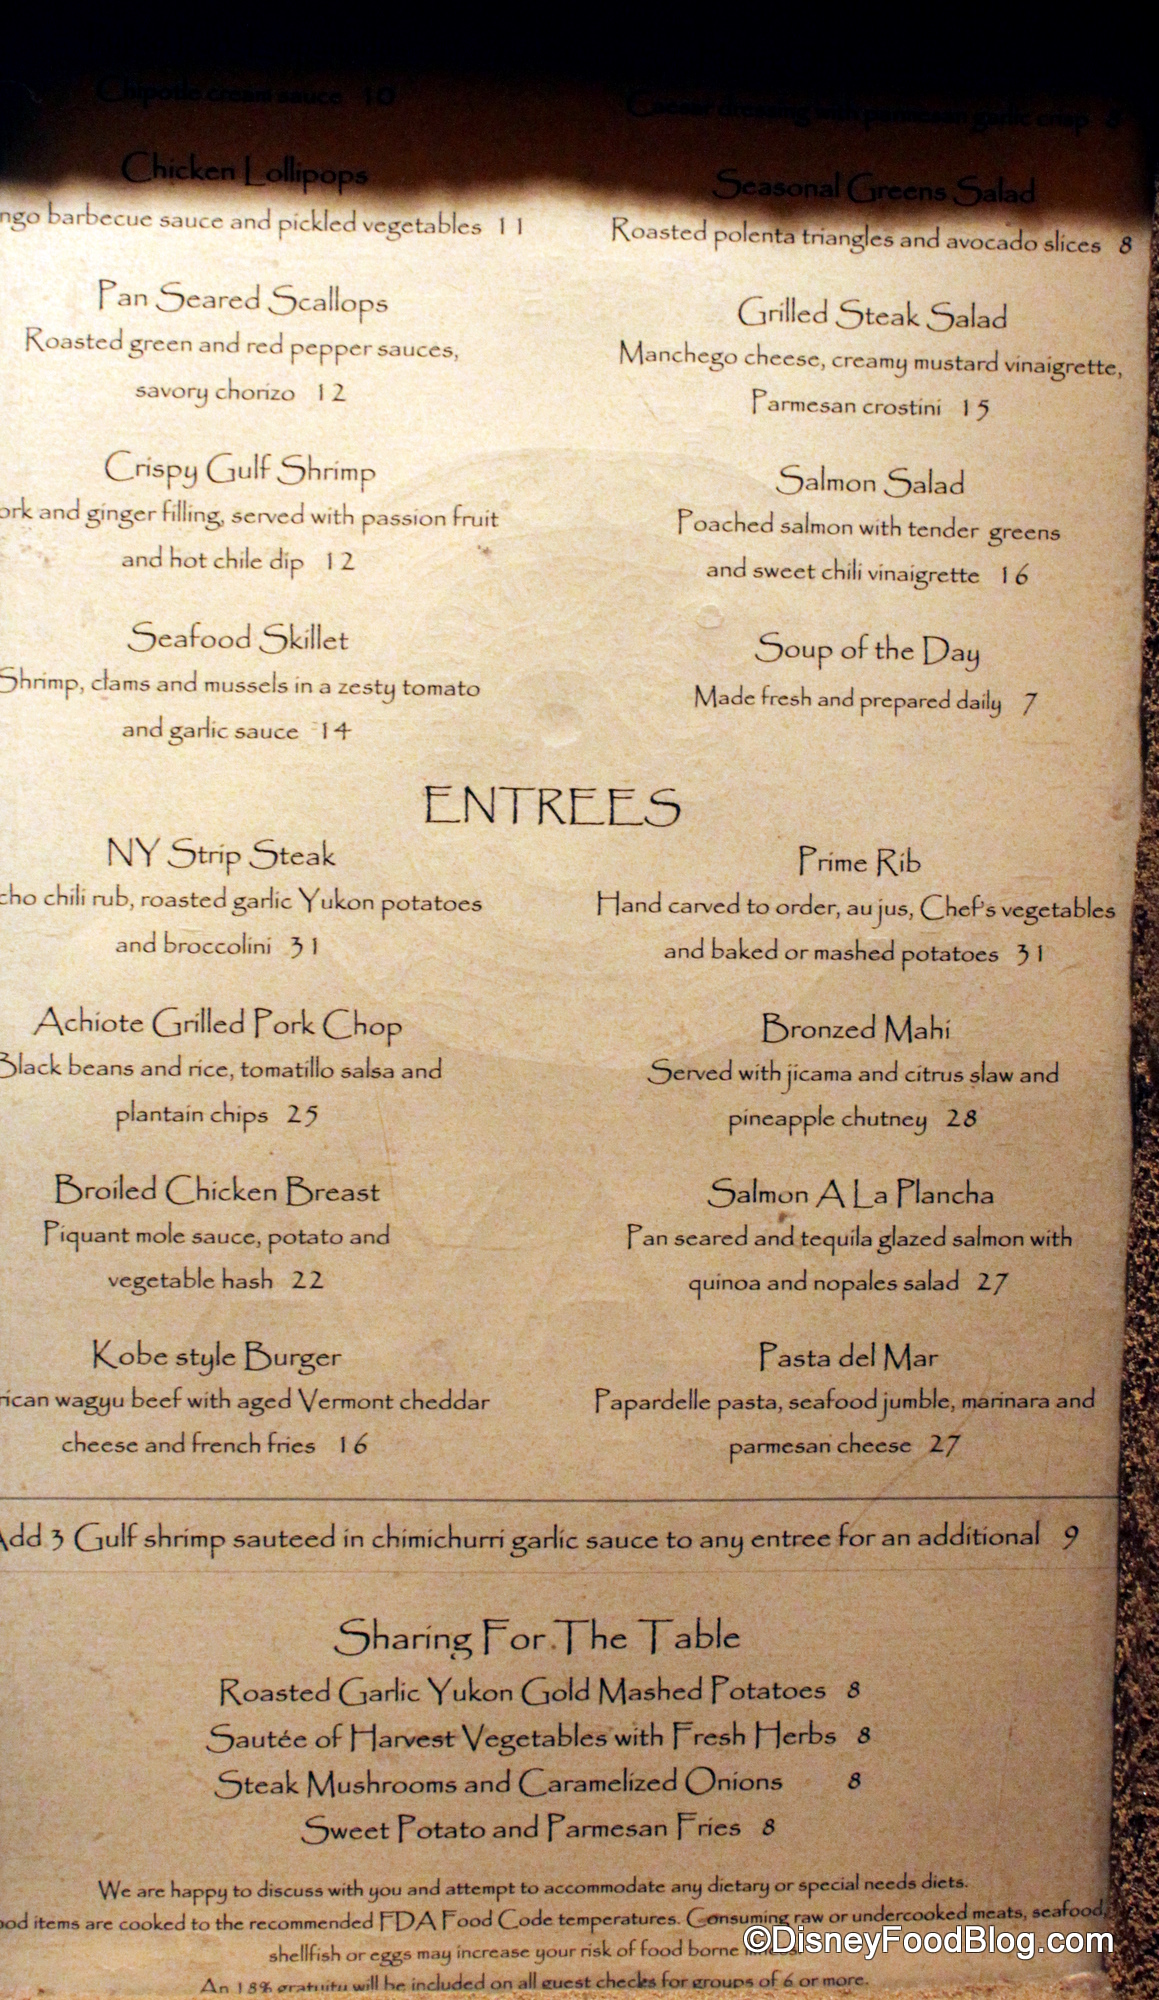 Chipotle cream sauce 10
Chicken Lollipops
barbecue sauce and pickled vegetables 11
Pan Seared Scallops
Roasted green and red pepper sauces,
savory chorizo 12
Crispy Gulf Shrimp
and ginger filling, served with passion fruit
and hot chile dip 12
Seafood Skillet
Shrimp, clams and mussels in a zesty tomato
and garlic sauce 14
Caesar dressing with parmesan garlic crisp 8
Seasonal Greens Salad
Roasted polenta triangles and avocado slices 8
Grilled Steak Salad
Manchego cheese, creamy mustard vinaigrette,
Parmesan crostini 15
Salmon Salad
Poached salmon with tender greens
and sweet chili vinaigrette 16
Soup of the Day
Made fresh and prepared daily 7
ENTREES
NY Strip Steak
chili rub, roasted garlic Yukon potatoes
and broccolini 31
Achiote Grilled Pork Chop
Black beans and rice, tomatillo salsa and
plantain chips 25
Broiled Chicken Breast
Piquant mole sauce, potato and
vegetable hash 22
Kobe style Burger
wagyu beef with aged Vermont cheddar
cheese and french fries 16
Prime Rib
Hand carved to order, au jus, Chef's vegetables
and baked or mashed potatoes 31
Bronzed Mahi
Served with jicama and citrus slaw and
pineapple chutney 28
Salmon A La Plancha
Pan seared and tequila glazed salmon with
quinoa and nopales salad 27
Pasta del Mar
Papardelle pasta, seafood jumble, marinara and
parmesan cheese 27
Add 3 Gulf shrimp sauteed in chimichurri garlic sauce to any entree for an additional 9
Sharing For The Table
Roasted Garlic Yukon Gold Mashed Potatoes 8
Sautée of Harvest Vegetables with Fresh Herbs 8
Steak Mushrooms and Caramelized Onions 8
Sweet Potato and Parmesan Fries 8
We are happy to discuss with you and attempt to accommodate any dietary or special needs diets.
items are cooked to the recommended FDA Food Code temperatures. Consuming raw or undercooked meats, seafood,
shellfish or eggs may increase your risk of food borne
©DisneyFoodBlog.com
An 18% gratuity will be included on all guest checks for groups of 6 or more.